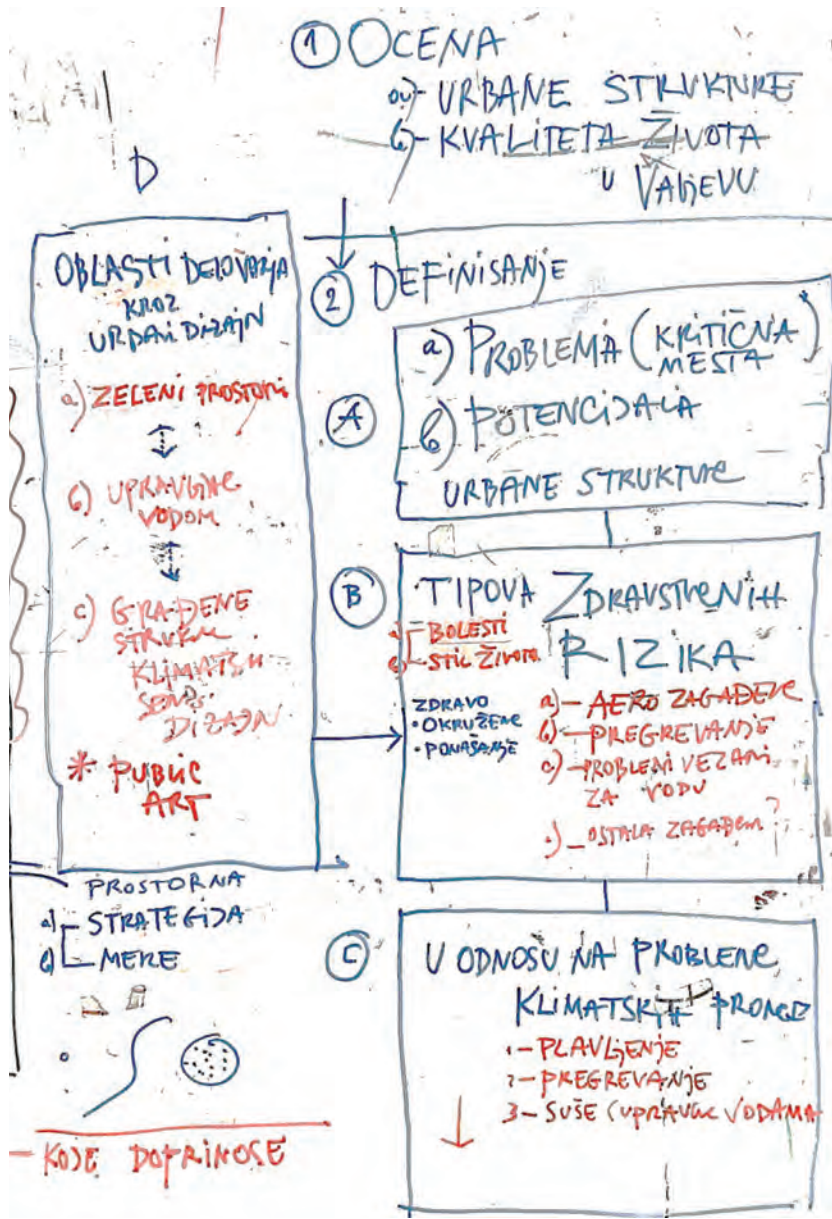 1 OCENA
a)- URBANE STRUKTURE
b)- KVALITETA ŽIVOTA
U VALJEVU
D
OBLASTI DELOVANJA
KROZ
URBANI DIZAJN
a) ZELENI PROSTORI
b) UPRAVLJANJE
VODOM
c) GRAĐENE
STRUKTURE
KLIMATSKI
SENS.
DIZAJN
* PUBLIC
ART
2 DEFINISANJE
A
a) PROBLEMA (KRITIČNA
MESTA)*
b) POTENCIJALA
URBANE STRUKTURE
B
TIPOVA ZDRAVSTVENIH
RIZIKA
a) BOLESTI
b) STIL ŽIVOTA
ZDRAVO
• OKRUŽENJE
• PONAŠANJE
a)- AERO ZAGAĐENJE
b)- PREGREVANJE
c)- PROBLEMI VEZANI
ZA VODU
.)- OSTALA ZAGAĐENJA?
PROSTORNA
a) STRATEGIJA
b) MERE
- KOJE DOPRINOSE
C
U ODNOSU NA PROBLEME
KLIMATSKIH PROMENA
1- PLAVLJENJE
2- PREGREVANJE
3- SUŠE (UPRAVLJANJE VODAMA